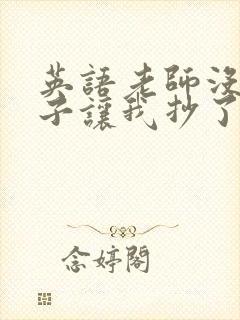 英語老師没
子讓我抄了
念婷閣